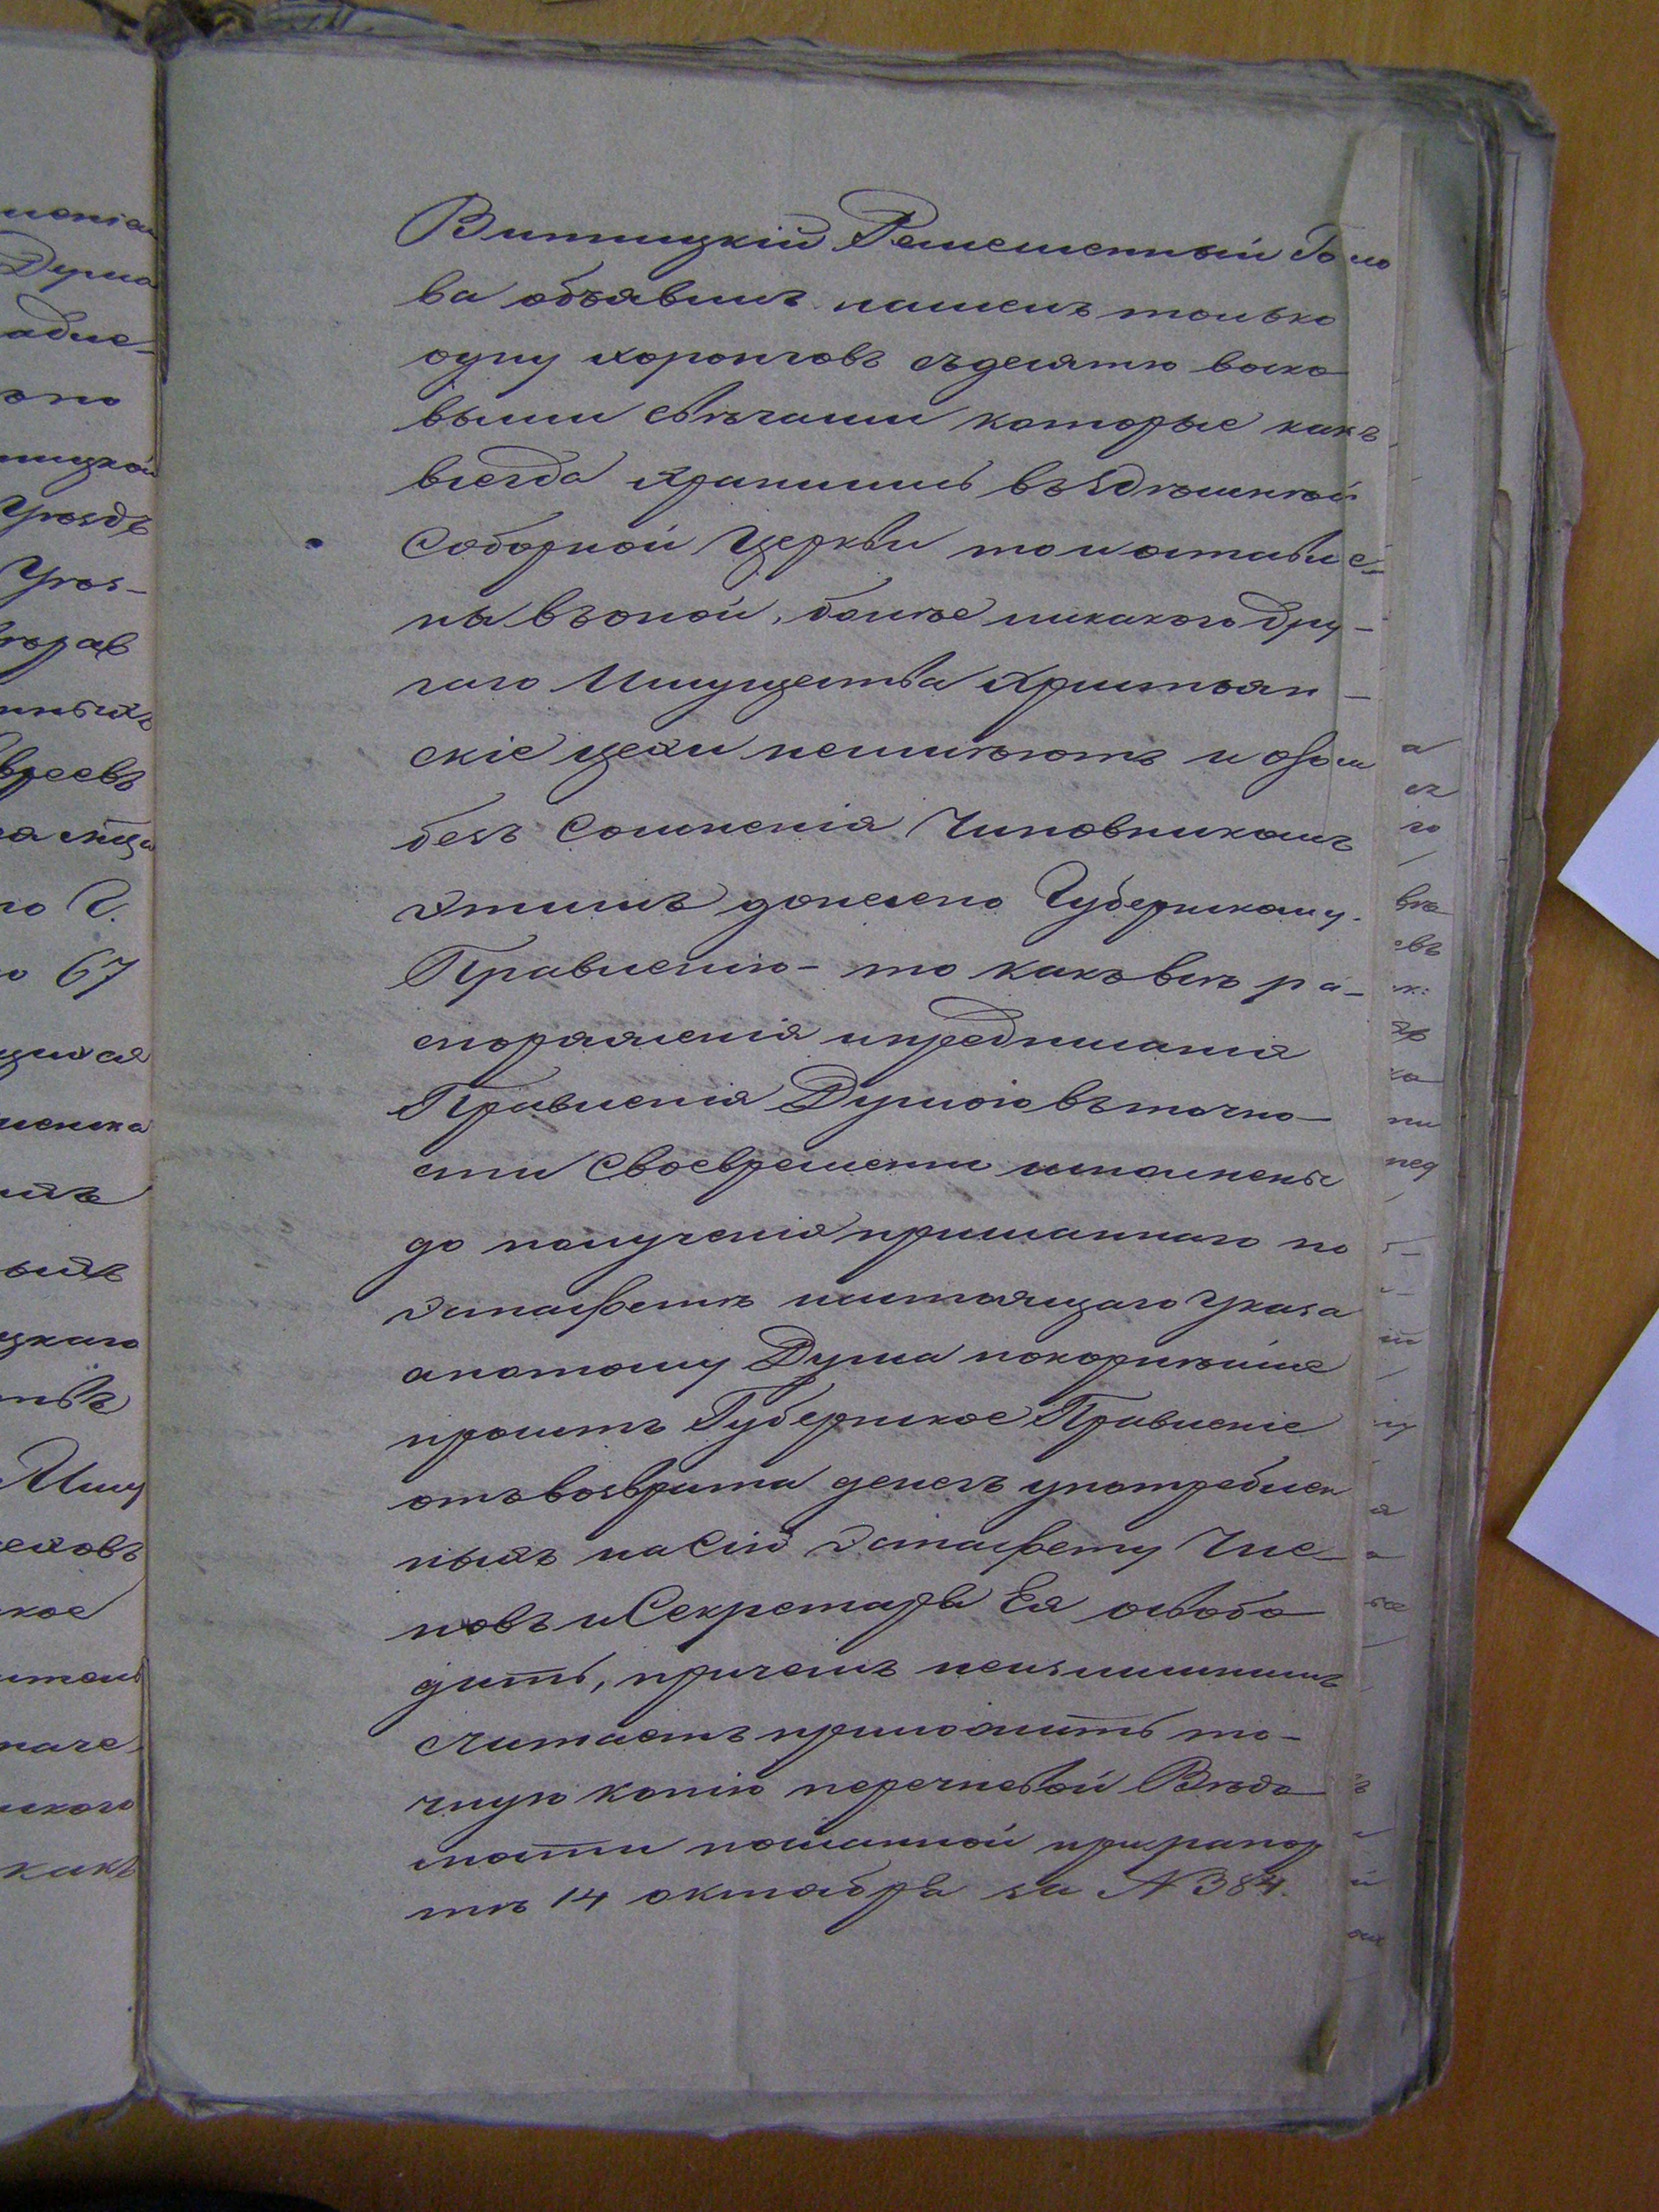 Винницкій Ремесленный Голо
ва объявилъ нашелъ только
одну хоронговъ съ десятю воско
выми свѣчами которые какъ
всегда хранились въ здѣшней
Соборной Церкви то и оставле-
ны въ оной, более никакого дру-
гаго Имущества христьян-
скіе цехи неимѣютъ и о семъ
безъ сомненія Чиновникомъ
этимъ донесено Губернскому
Правленію - то какъ всѣ ра-
споряженія и предписанія
Правленія Думою въ точно-
сти своевременно исполнены
до полученія присланнаго по
эстафетѣ настоящаго указа
а потому Дума покорнѣйше
проситъ Губернское Правленіе
отъ возврата денегъ употреблен
ныхъ на Сію эстафету Чле-
новъ и Секретаря Ея освобо
дить, причемъ неизлишнимъ
считаетъ приложить то-
чную копію перечневой Вѣдо
мости посланной при рапор
тѣ 14 октября за N 384.
менія
Дума
ницкой
Уѣздъ
Уѣз-
еврсевъ
но 67
Иму
еховъ
кое
каго
какъ